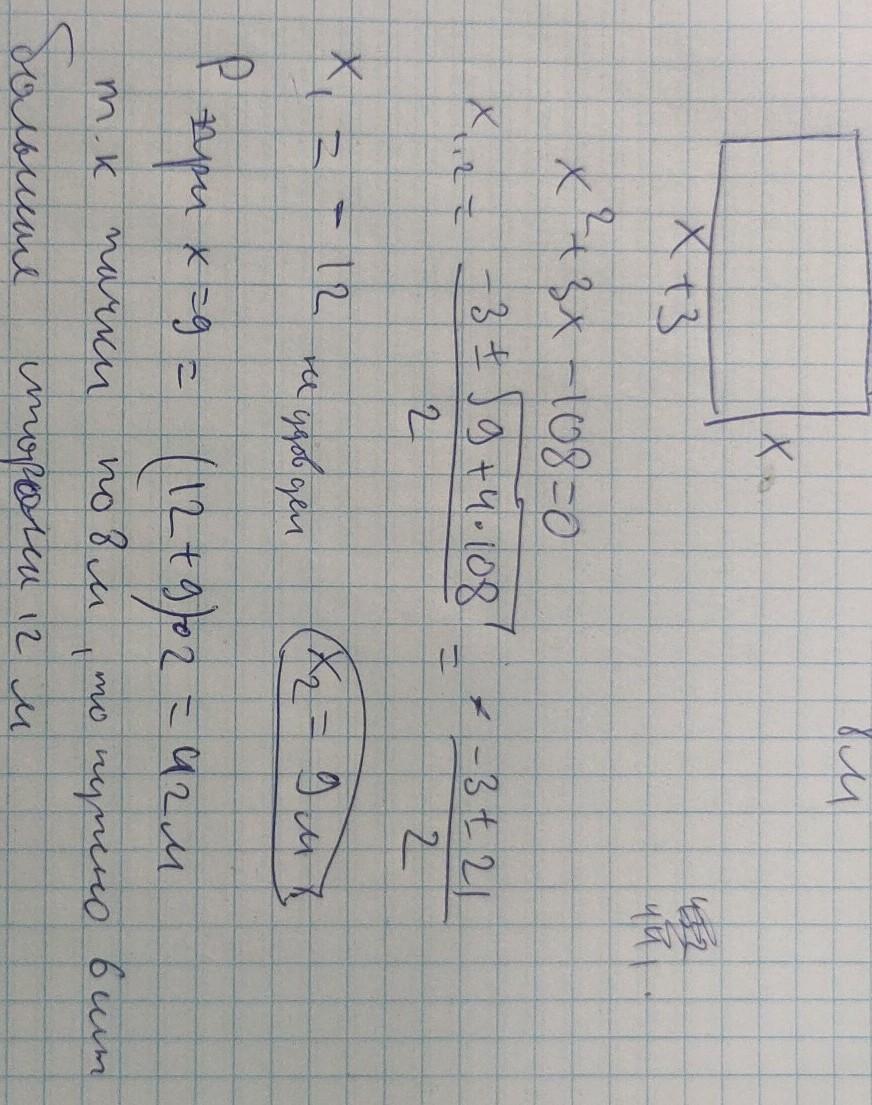 8 м
x
x + 3
441
x² + 3x - 108 = 0
x₁,₂ = (-3 ± √(9 + 4·108)) / 2 = (-3 ± 21) / 2
x₁ = -12 не удов x₂ = 9 м
P при x = 9 = (12 + 9)·2 = 42 м
т.к пачки по 8 м, то нужно 6 шт
большие стороны 12 м